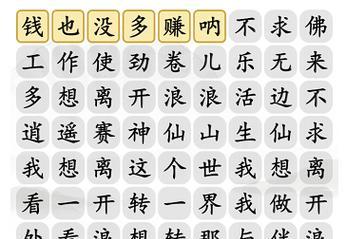 钱也没多赚呐不求佛
工作使劲卷儿乐无来
多想离开浪浪活边不
逍遥赛神仙山生仙求
我想离这个世我想离
看一开转一界我做开
处看浪想转那与伴浪